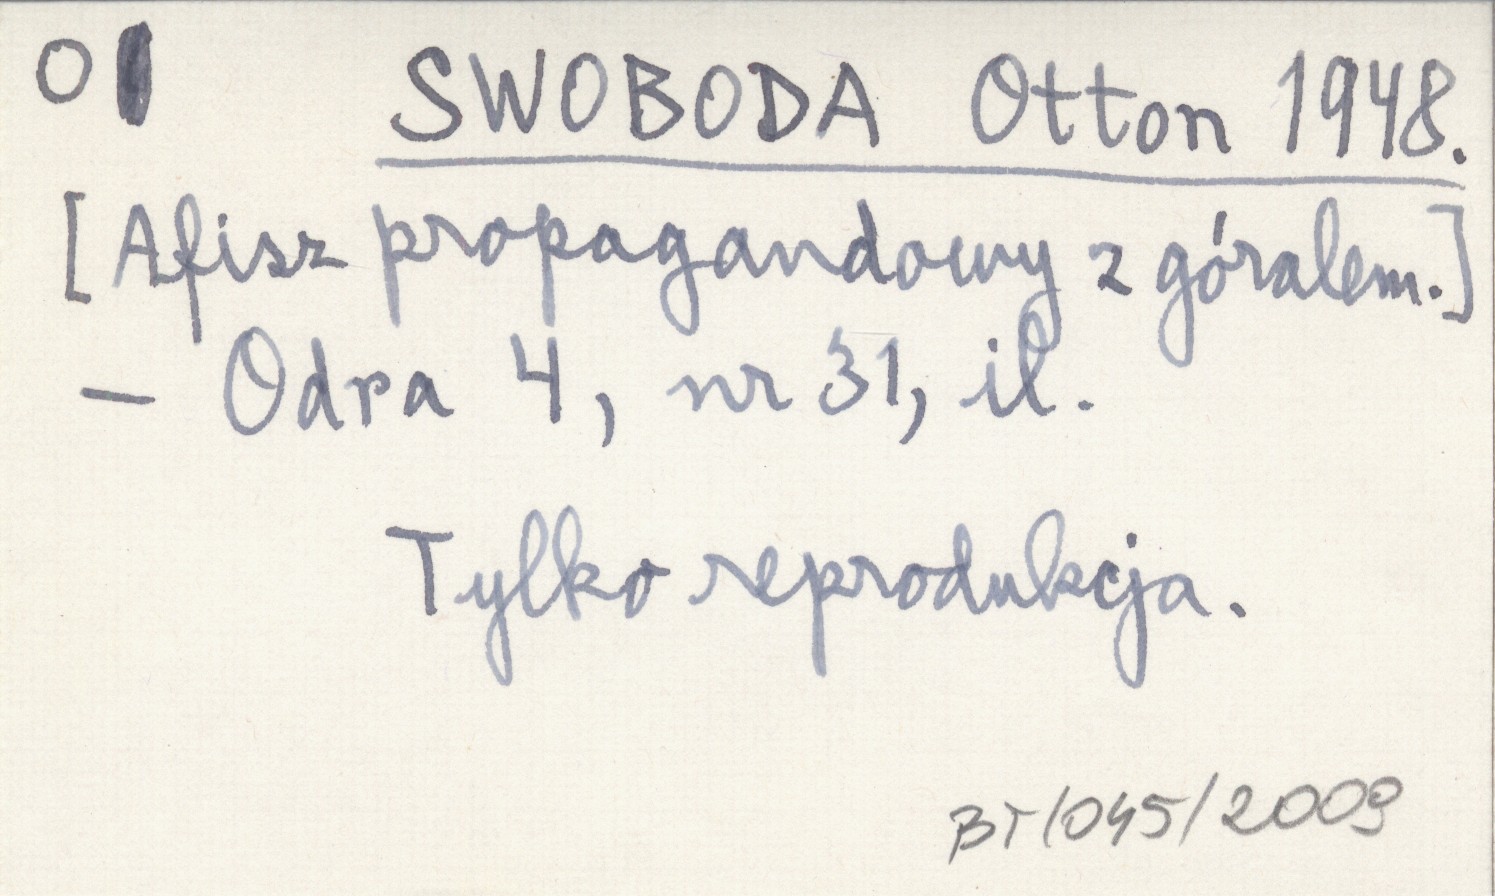 O SWOBODA Otton 1948.
[Afisz propagandowy z góralem.]
– Odra 4, nr 31, il.
Tylko reprodukcja.
BT/045/2009